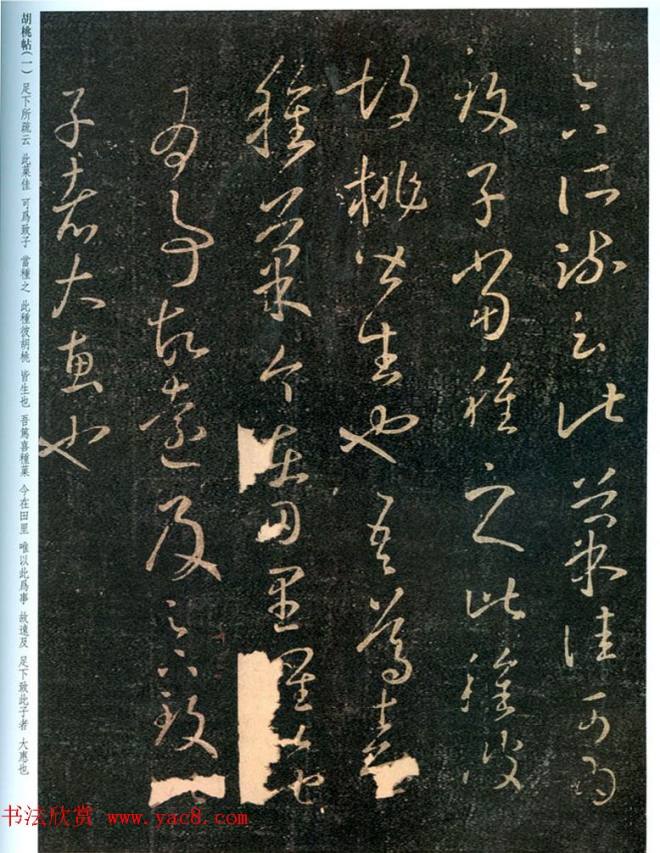 足下所疏云此菓佳可爲
致子當種之此種彼
胡桃皆生也吾篤喜
種菓今在田里唯以此
爲事故遠及足下致
子者大惠也
胡桃帖(一) 足下所疏云 此菓佳 可爲致子 當種之 此種彼胡桃 皆生也 吾篤喜種菓 今在田里 唯以此爲事 故遠及 足下致此子者 大惠也
书法欣赏 www.yac8.com